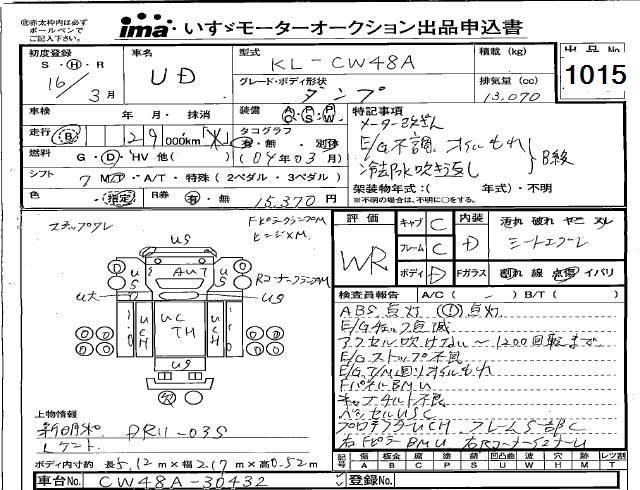 ㊟赤太枠内は必ず
ボールペンで
ご記入下さい。
ima いすゞモーターオークション出品申込書
初度登録 S・H・R 16/3月
車名 UD
型式 KL-CW48A
積載 (kg)
出品No 1015
グレード・ボディ形状 ダンプ
排気量 (cc) 13,070
車検 年・月・抹消
装備 AC PS PW
走行 129,000km
タコグラフ 有・無・別体
燃料 G・D・HV 他( )
(04年03月)
シフト 7 M・A/T・特殊 (2ペダル・3ペダル)
色 指定
R券 有・無 15,370円
特記事項
メーター改ざん
E/G不調、オイルもれ
冷却水吹き返し
B級
架装物年式:( 年式)・不明
※不明の場合は、不明に○をする。
ステップワレ
US
AUT
US
US
UC
TH
UCH
UCH
US
評価 WR
キャブ C
フレーム C
ボディ D
内装 D
汚れ 破れ ヤニ スレ
Fガラス 割れ 線 点傷 イバリ
検査員報告 A/C ( ) B/T ( )
ABS点灯 ①点灯
E/Gチェック点滅
アクセル吹けない~1200回転まで
E/Gストップ不良
E/G,T/M回りオイルもれ
FパネルBMU
キャブチルト不良
ベッセルUSC
プロテクターUCH フレームS一部C
右FピラーBMU
上物情報
新明和
DR11-03S
ボディ内寸約 長5.12m×幅2.17m×高0.52m
記号 傷A 板金B 腐C 塗P 錆S 凹凸曲U 波W 穴H 跡M 汚T レツ割
車台No. CW48A-30432
登録No.